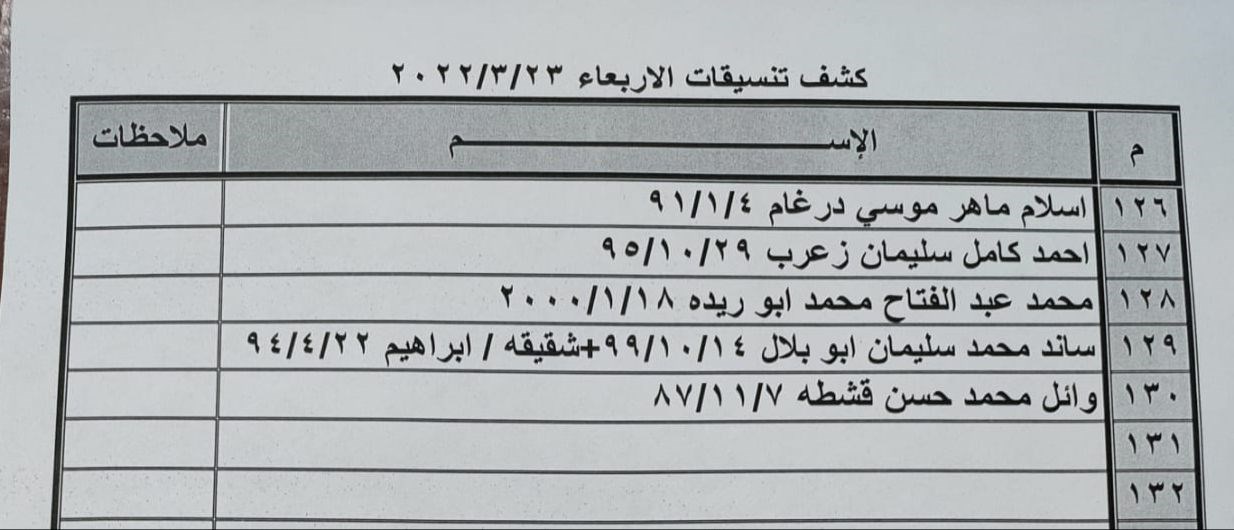 كشف تنسيقات الاربعاء ٢٠٢٢/٣/٢٣
م الإســــــم ملاحظات
١٢٦ اسلام ماهر موسي درغام ٩١/١/٤
١٢٧ احمد كامل سليمان زعرب ٩٥/١٠/٢٩
١٢٨ محمد عبد الفتاح محمد ابو ريده ٢٠٠٠/١/١٨
١٢٩ ساند محمد سليمان ابو بلال ٩٩/١٠/١٤+شقيقه / ابراهيم ٩٤/٤/٢٢
١٣٠ وائل محمد حسن قشطه ٨٧/١١/٧
١٣١
١٣٢